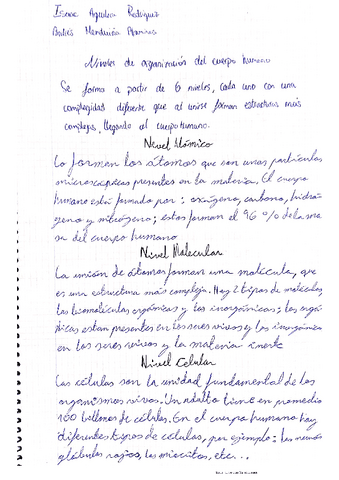 Isaac Aguilera Rodríguez
Niveles de organización del cuerpo humano
Se forma a partir de 6 niveles, cada uno con una
complejidad diferente que al unirse forman estructuras más
complejas, llegando al cuerpo humano.
Nivel Atómico
Lo forman los átomos que son unas partículas
microscópicas presentes en la materia. El cuerpo
humano está formado por: oxígeno, carbono, hidró
geno y nitrógeno; estos forman el 96 % de la ma
sa del cuerpo humano
Nivel Molecular
La unión de átomos forman una molécula, que
es una estructura más compleja. Hay 2 tipos de moléculas
las biomoléculas orgánicas y las inorgánicas; las orgá
nicas estan presentes en los seres vivos y las inorgánica
en los seres vivos y la materia inerte
Nivel Celular
Las células son la unidad fundamental de los
organismos vivos. Un adulto tiene en promedio
100 billones de células. En el cuerpo humano hay
diferentes tipos de células, por ejemplo: las neuronas
glóbulos rojos, los miocitos, etc...